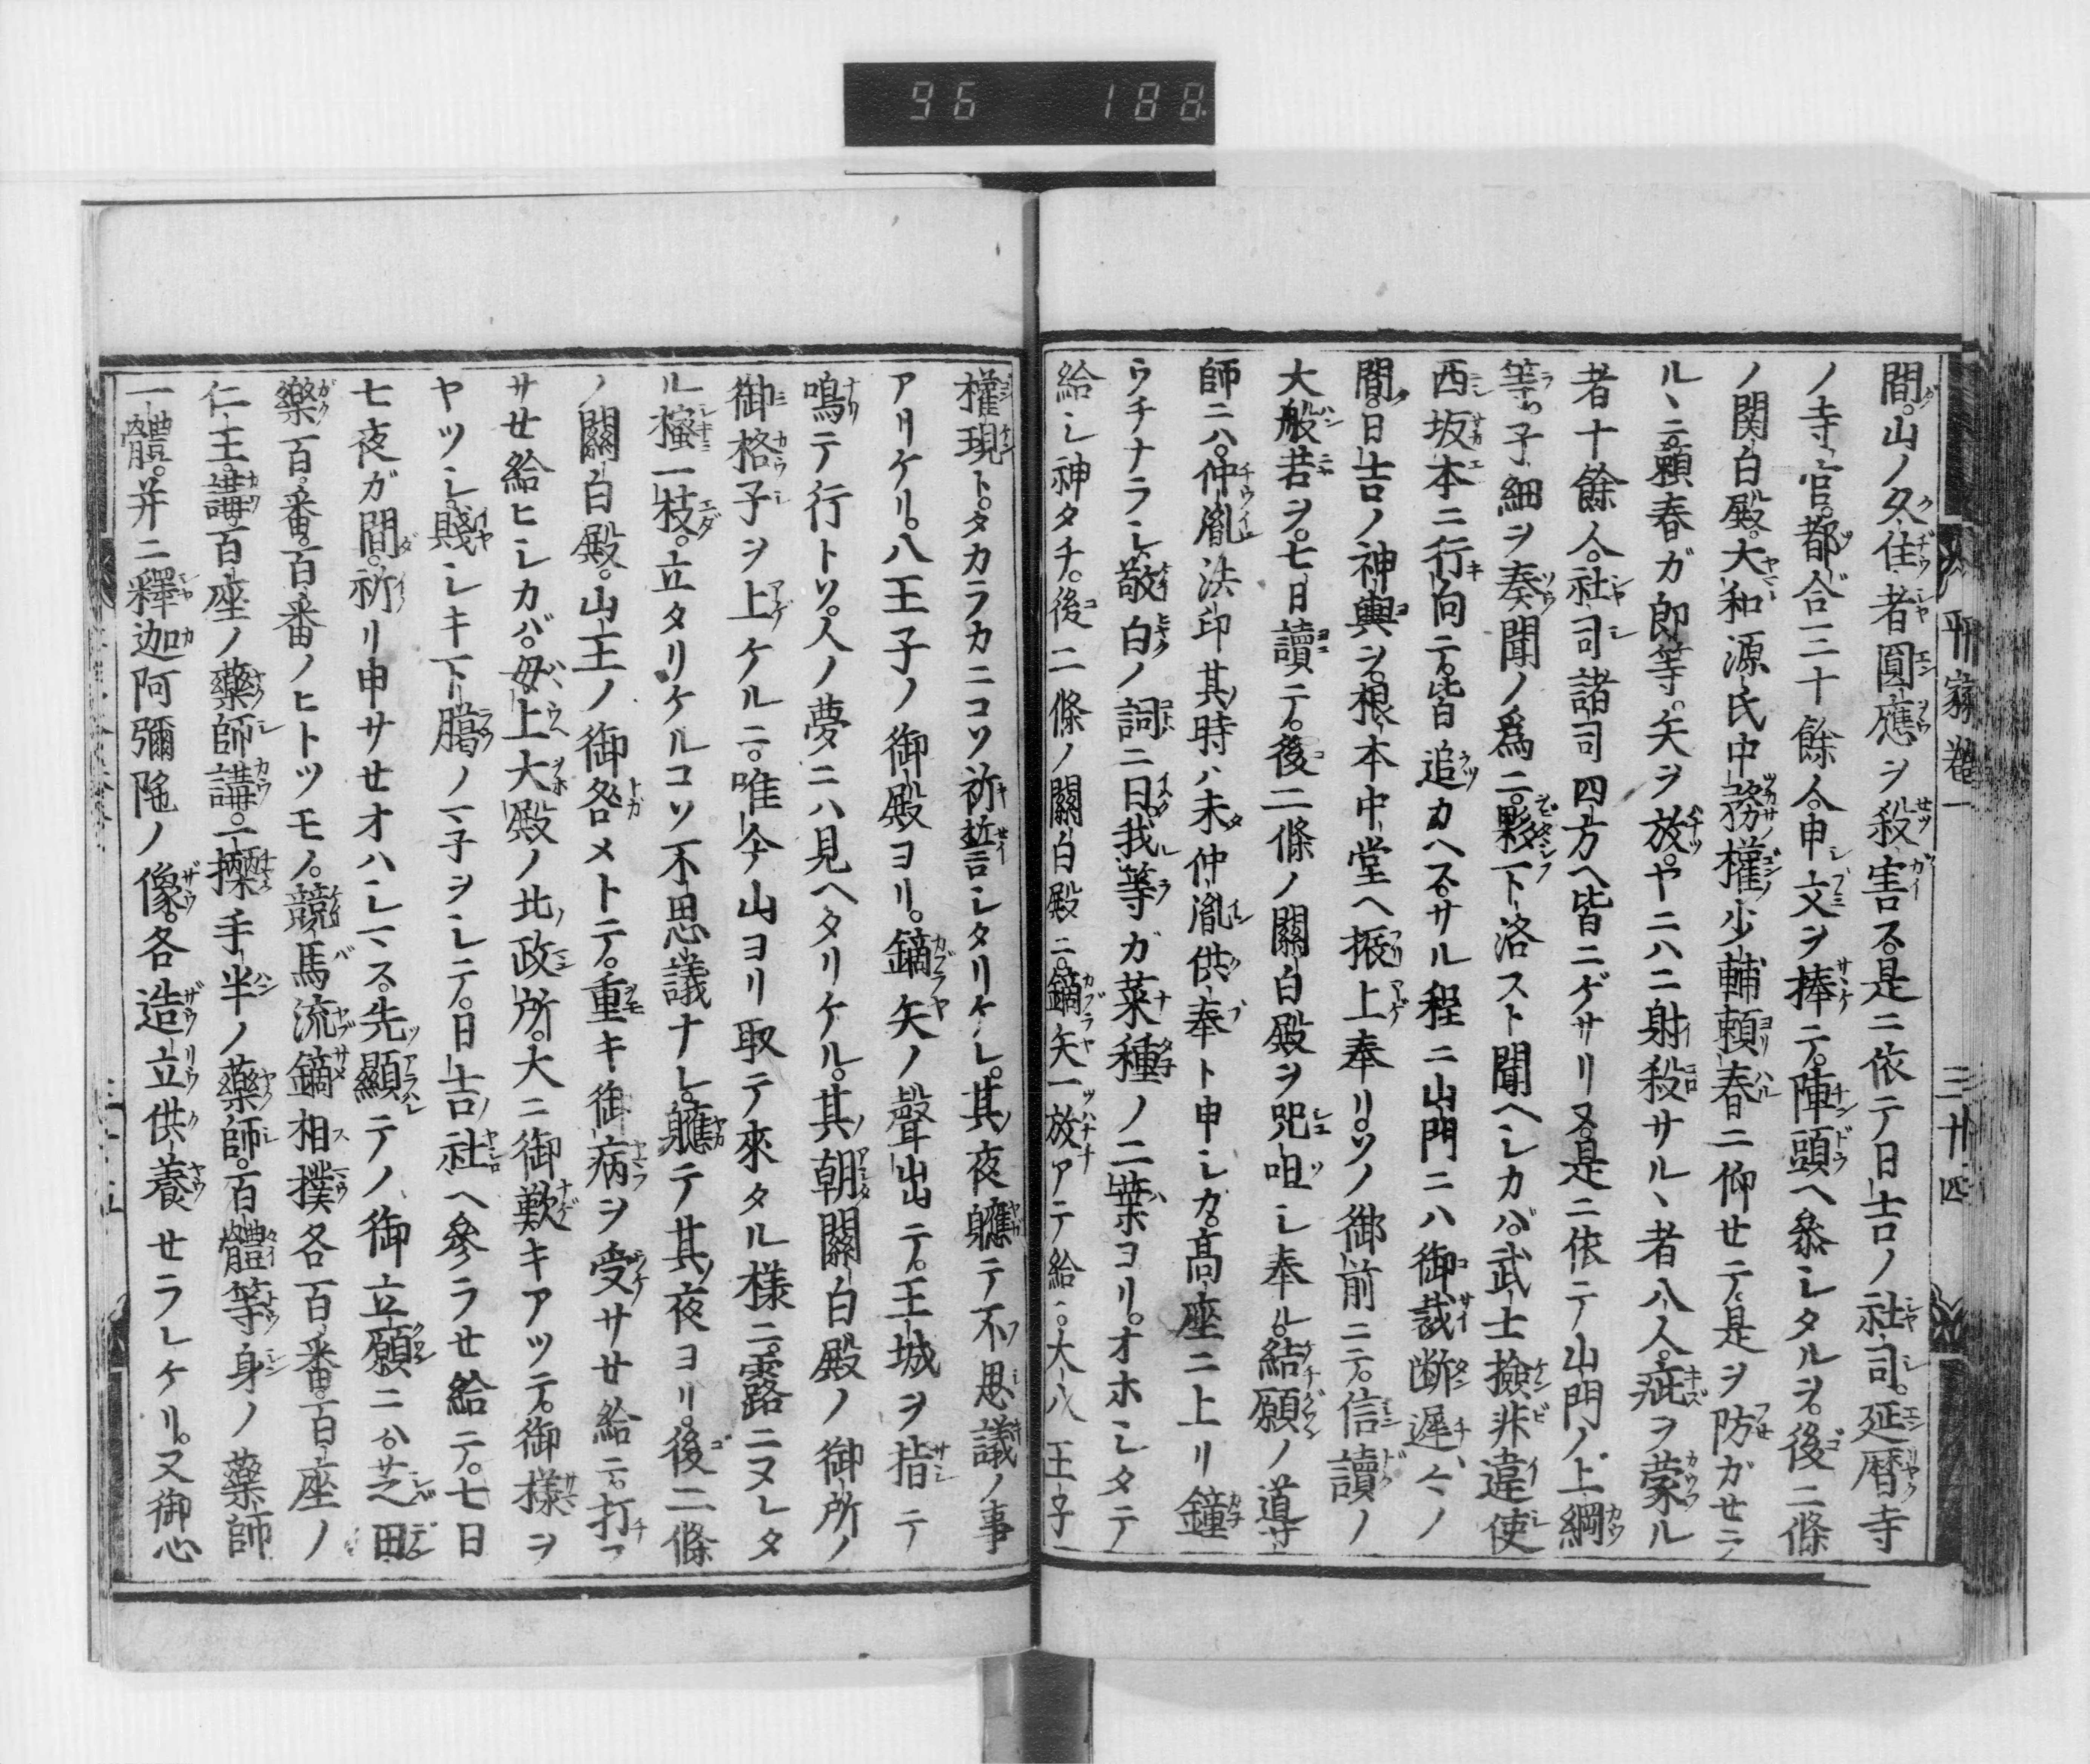 96 188
平家巻一 三十四
間。山ノ久住者圓應ヲ殺害ス。是ニ依テ日吉ノ社司。延暦寺
ノ寺官。都合三十餘人。申文ヲ捧テ。陣頭ヘ參シタルヲ。後二條
ノ関白殿。大和源氏中務權少輔頼春ニ仰セテ。是ヲ防ガセラ
ルヽニ。頼春ガ郎等。矢ヲ放。ヤニハニ射殺サルヽ者八人。疵ヲ蒙ル
者十餘人。社司諸司四方ヘ皆ニゲサリヌ。是ニ依テ山門ノ上綱
等。子細ヲ奏聞ノ爲ニ。夥下洛スト聞ヘシカバ。武士撿非違使
西坂本ニ行向テ。皆追カヘス。サル程ニ山門ニハ御裁断遲々ノ
間。日吉ノ神輿ヲ。根本中堂ヘ振上奉リ。ソノ御前ニテ。信讀ノ
大般若ヲ。七日讀テ。後二條ノ關白殿ヲ咒咀シ奉ル。結願ノ導
師ニハ。仲胤法印其時ハ未仲胤供奉ト申シガ。髙座ニ上リ鐘
ウチナラシ。敬白ノ詞ニ曰。我等ガ菜種ノ二葉ヨリ。オホシタテ
給シ神タチ。後二條ノ關白殿ニ。鏑矢一放アテ給ヘ。大八王子
權現ト。タカラカニコソ祈誓シタリケレ。其夜軈テ不思議ノ事
アリケリ。八王子ノ御殿ヨリ。鏑矢ノ聲出テ。王城ヲ指テ
鳴テ行トソ。人ノ夢ニハ見ヘタリケル。其朝關白殿ノ御所ノ
御格子ヲ上ケルニ。唯今山ヨリ取テ來タル樣ニ。露ニヌレタ
ル樒一枝。立タリケルコソ不思議ナレ。軈テ其夜ヨリ。後二條
ノ關白殿。山王ノ御咎メトテ。重キ御病ヲ受サセ給テ。打フ
サセ給ヒシカバ。母上大殿ノ北政所。大ニ御歎キアツテ。御樣ヲ
ヤツシ。賤シキ下臈ノマ子ヲシテ。日吉社ヘ參ラセ給テ。七日
七夜ガ間。祈リ申サセオハシマス。先顯テノ御立願ニハ。芝田
樂百番。百番ノヒトツモノ。競馬流鏑相撲各百番。百座ノ
仁王講。百座ノ藥師講。一搩手半ノ藥師。百體等身ノ藥師
一體。并ニ釋迦阿彌陀ノ像。各造立供養セラレケリ。又御心